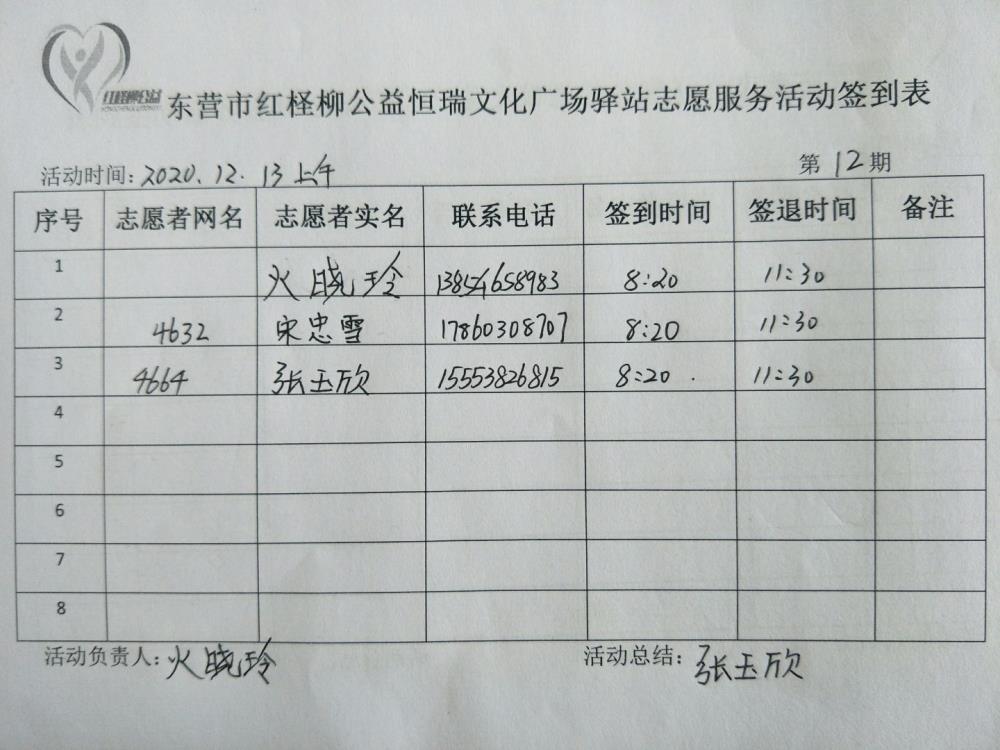 红柽柳公益
东营市红柽柳公益恒瑞文化广场驿站志愿服务活动签到表
活动时间:2020.12.13上午 第12期
序号 志愿者网名 志愿者实名 联系电话 签到时间 签退时间 备注
1 火晓玲 13854658983 8:20 11:30
2 4632 宋忠雪 17860308707 8:20 11:30
3 4664 张玉欣 15553826815 8:20 11:30
4
5
6
7
8
活动负责人:火晓玲 活动总结:张玉欣